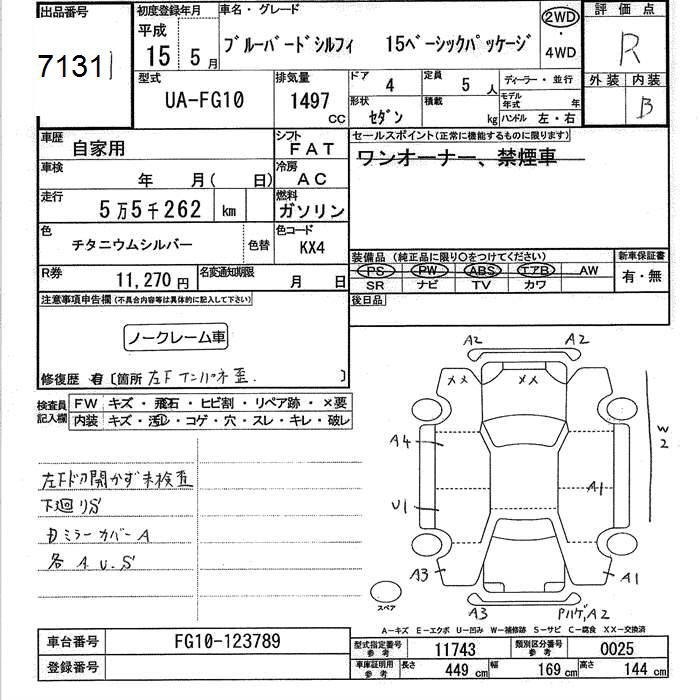 出品番号 初度登録年月 車名・グレード 2WD 評価点
7131 平成 15年 5月 ブルーバードシルフィ 15ベーシックパッケージ ・ 4WD R
型式 排気量 ドア 4 定員 5人 ディーラー・並行 外装 内装
UA-FG10 1497 CC 形状 セダン 積載 kg モデル年式 年 B
ハンドル 左・右
車歴 自家用 シフト FAT セールスポイント(正常に機能するものに限ります)
車検 年 月( 日) 冷房 AC ワンオーナー、禁煙車
走行 5万5千262 km 燃料 ガソリン
色 チタニウムシルバー 色替 色コード KX4
装備品(純正品に限り○をつけてください) 新車保証書
R券 11,270円 名変通知期限 月 日 PS PW ABS エアB AW 有・無
SR ナビ TV カワ
注意事項申告欄(不具合内容等は具体的に記入して下さい) 後日品
ノークレーム車
修復歴 有 〔箇所 左F インパネ歪. 〕
検査員記入欄 FW キズ・飛石・ヒビ割・リペア跡・×要
内装 キズ・汚レ・コゲ・穴・スレ・キレ・破レ
左Fドア開かず未検査
下廻りS
ミラーカバーA
各 A.U.S
A2 A2
XX XX
A4 W2
A1
U1
A3 A1
スペア
A3 Pハゲ,A2
A-キズ E-エクボ U-凹み W-補修跡 S-サビ C-腐食 XX-交換済
車台番号 FG10-123789 型式指定番号 参考 11743 類別区分番号 参考 0025
登録番号 車庫証明用 参考 長さ 449cm 幅 169cm 高さ 144cm